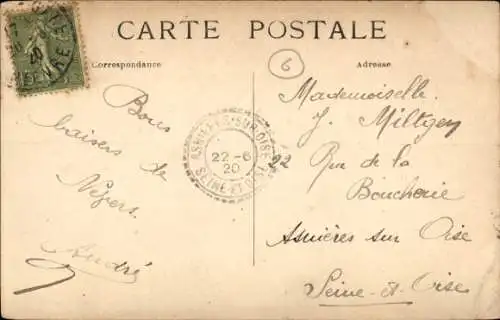 CARTE POSTALE
Correspondance
Adresse
6
Bons
baisers de
Nyers
André
ASNIÈRES-SUR-OISE
22 -6
20
SEINE-ET-OISE
Mademoiselle
J. Miltgen
22 Rue de la
Boucherie
Asnières sur Oise
Seine-et-Oise